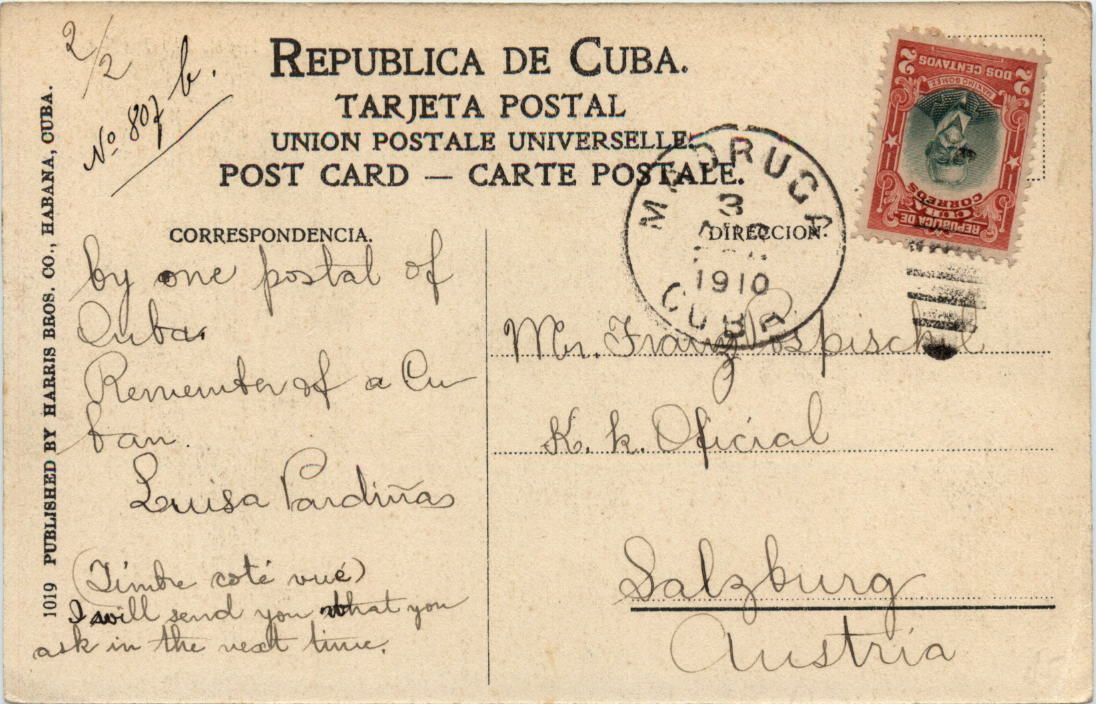 2/2
Nº 807 b.
REPUBLICA DE CUBA.
TARJETA POSTAL
UNION POSTALE UNIVERSELLE.
POST CARD — CARTE POSTALE.
1019 PUBLISHED BY HARRIS BROS. CO., HABANA, CUBA.
CORRESPONDENCIA.
by one postal of
Cuba.
Remember of a Cu
ban.
Luisa Pardiñas
(Timbre coté vué)
I will send you that you
ask in the next time.
DIRECCION.
Mr. Franz Pospischil
K. k. Oficial
Salzburg
Austria
MADRUGA
3
1910
CUBA
2 2
DOS CENTAVOS
MAXIMO GOMEZ
REPUBLICA DE
CUBA
CORREOS